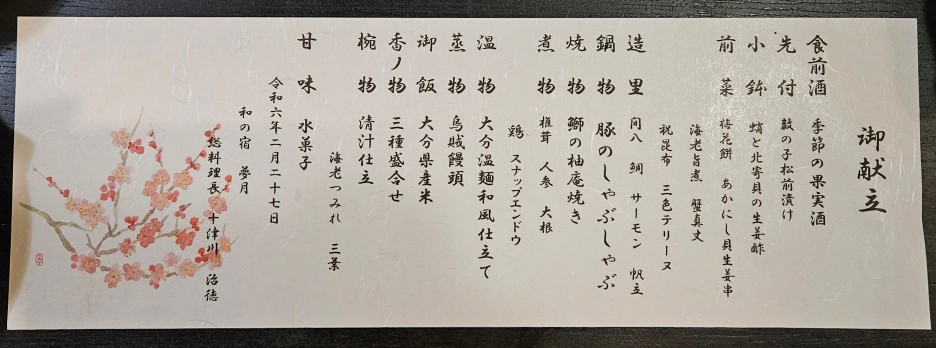 御献立
食前酒 季節の果実酒
先付 数の子松前漬け
小鉢 蛸と北寄貝の生姜酢
前菜 梅花餅 あかにし貝生姜串
海老旨煮 蟹真丈
祝昆布 三色テリーヌ
造里 間八 鯛 サーモン 帆立
鍋物 豚のしゃぶしゃぶ
焼物 鰤の柚庵焼き
煮物 椎茸 人参 大根
鶏 スナップエンドウ
温物 大分温麺和風仕立て
蒸物 烏賊饅頭
御飯 大分県産米
香ノ物 三種盛合せ
椀物 清汁仕立
海老つみれ 三葉
甘味 水菓子
令和六年二月二十七日
和の宿 夢月
総料理長 十津川 治徳